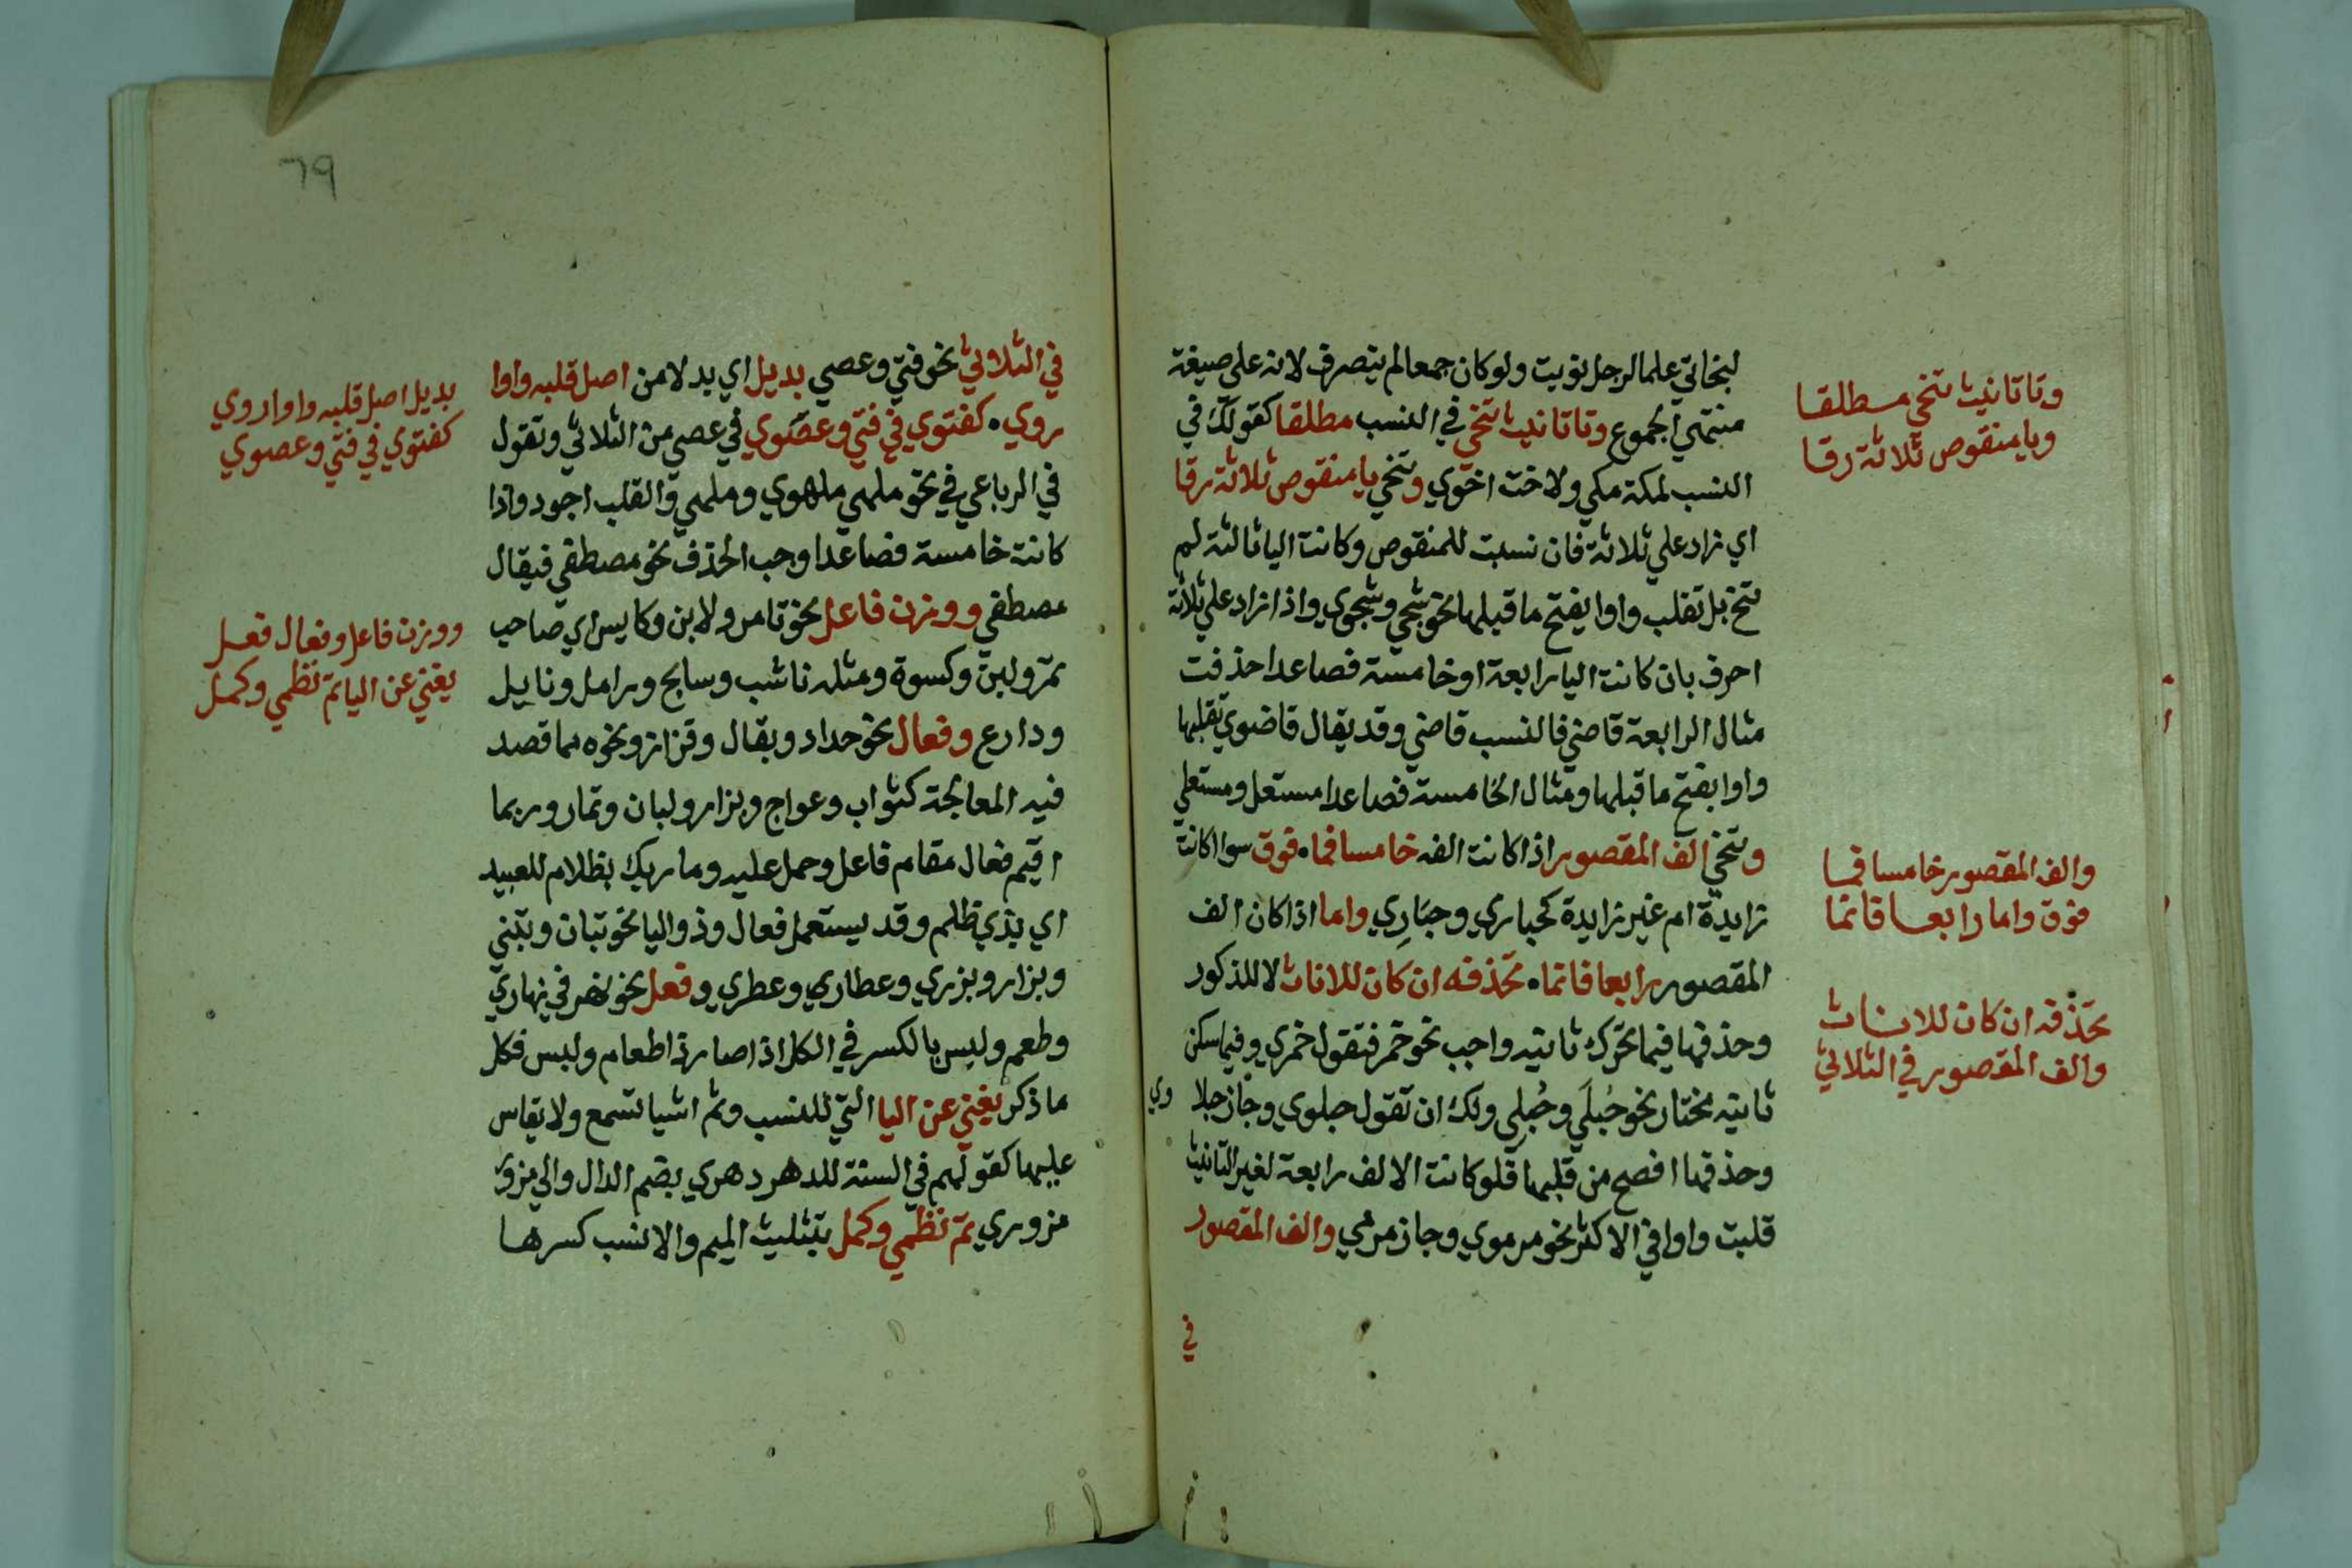 لبخاتي علما لرجل نويت ولو كان جمعا لم يتصرف لانه على صيغة
منتهي الجموع وتا تانيث تنحي في النسب مطلقا كقولك في
النسب لمكة مكي ولاخت اخوي وتنحي يا منقوص ثلاثة رقا
اي زاد علي ثلاثة فان نسبت للمنقوص وكانت اليا ثالثة لم
تنح بل تقلب واوا يفتح ما قبلها نحو شجي وشجوي واذا زاد علي ثلاثة
احرف بان كانت اليا رابعة او خامسة فصاعدا حذفت
مثال الرابعة قاضي فالنسب قاضي وقد يقال قاضوي تقلبها
واوا بفتح ما قبلها ومثال الخامسة فصاعدا مستعل ومستعلي
وتنحي الف المقصور اذا كانت الفه خامسا فما فوق سوا كانت
زايدة ام غير زايدة كحباري وحبَارِي واما اذا كان الف
المقصور رابعا فانما تحذفه ان كان للاناث لا للذكور
وحذفها فيما تحرك ثانيه واجب نحو خمر فتقول خمري وفيما سكن
ثانيه مختار نحو حُبلَي وحُبلِي ولك ان تقول حبلوي وجاز حبلا
وي
وحذفها افصح من قلبها فلو كانت الالف رابعة لغير التانيث
قلبت واوا في الاكثر نحو مرموي وجاز مرمي والف المقصور
في
وتا تانيث تنحي مطلقا
ويا منقوص ثلاثة رقا
والف المقصور خامسا فما
فوق واما رابعا فانما
تحذفه ان كان للاناث
والف المقصور في الثلاثي
٦٩
في الثلاثي نحو فتي وعصي بديل اي بدلا من اصل قلبه واوا
روي كفتوي في فتي وعصوي في عصي من الثلاثي وتقول
في الرباعي في نحو ملهي ملهوي وملهي والقلب اجود واذا
كانت خامسة فصاعدا وجب الحذف نحو مصطفي فيقال
مصطفي ووزن فاعل نحو تامر ولابن وكايس اي صاحب
تمر ولبن وكسوة ومثله ناشب وسابح ورامل ونابل
ودارع وفعال نحو حداد وبقال وقزاز ونحوه مما قصد
فيه المعالجة كثواب وعواج وبزار ولبان وتمار وربما
اقيم فعال مقام فاعل وحمل عليه وما ربك بظلام للعبيد
اي بذي ظلم وقد يستعمل فعال وذو اليا نحو تبان وتبني
وبزار وبزري وعطاري وعطري وفعل نحو نهر في نهاري
وطعم ولبس بالكسر في الكل اذا صار ذا طعام ولبس فكل
ما ذكر يغني عن اليا التي للنسب وثم اشيا تسمع ولا يقاس
عليها كقولهم في السنة للدهر دهري بضم الدال والي مرو
مروزي تم نظمي وكمل بتثليث الميم والانسب كسرها
بديل اصل قلبه واوا روي
كفتوي في فتي وعصوي
ووزن فاعل وفعال فعل
يغني عن اليا تم نظمي وكمل